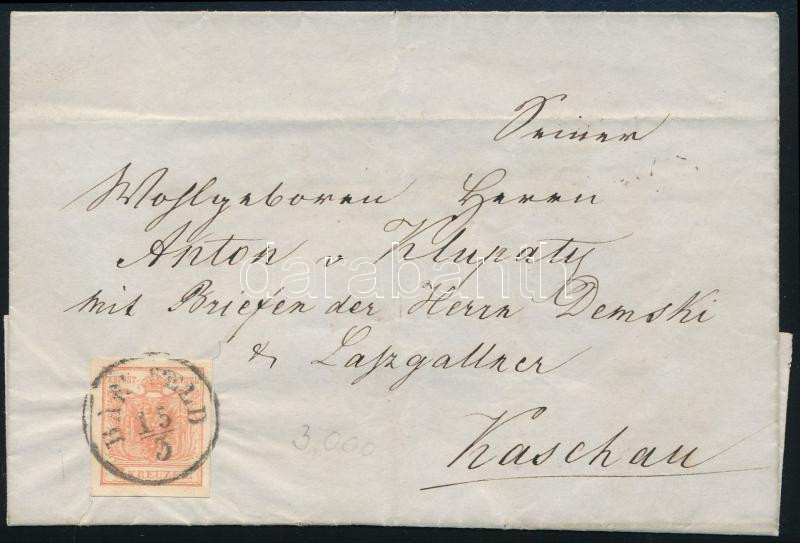 Seiner
Wohlgeboren Herrn
Anton v Klupaty
mit Briefen der Herrn Demski
& Laszgallner
Kaschau
BARTFELD
15
5
KREUZER
3,000
darabanth